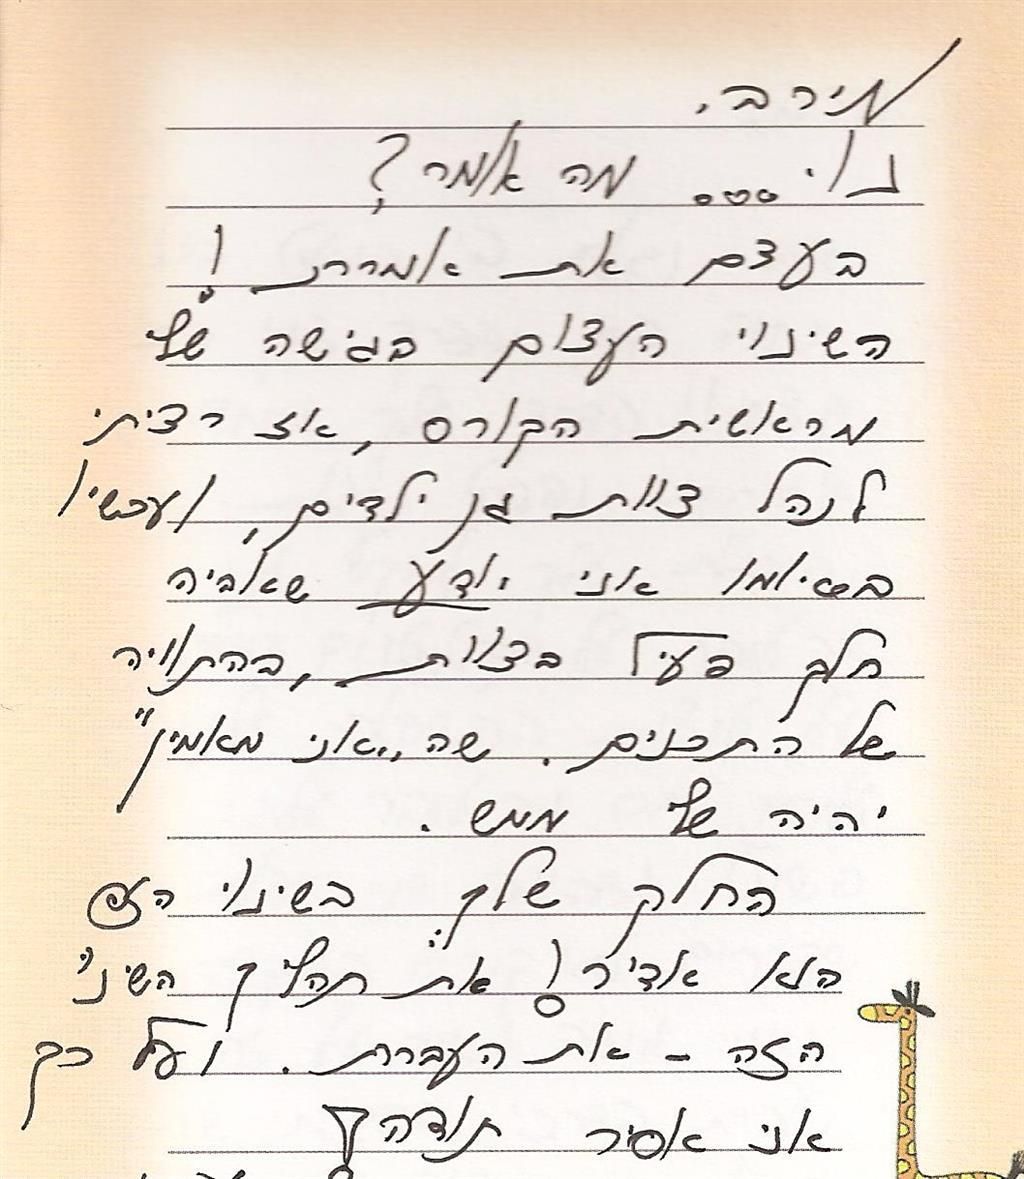 מירב.
נו... מה אומר?
בעצם את אמרת!
השינוי העצום בגישה שלי
מראשית הקורס, אז רציתי
לנהל צוות גן ילדים, ועכשיו
בסיומו אני יודע שאהיה
חלק פעיל בצוות, בהתוויה
של התכנים. שה"אני מאמין"
יהיה שלי ממש.
החלק שלך בשינוי הזה
הוא אדיר! את תהליך השינוי
הזה - את העברת. ועל כך
אני אסיר תודה